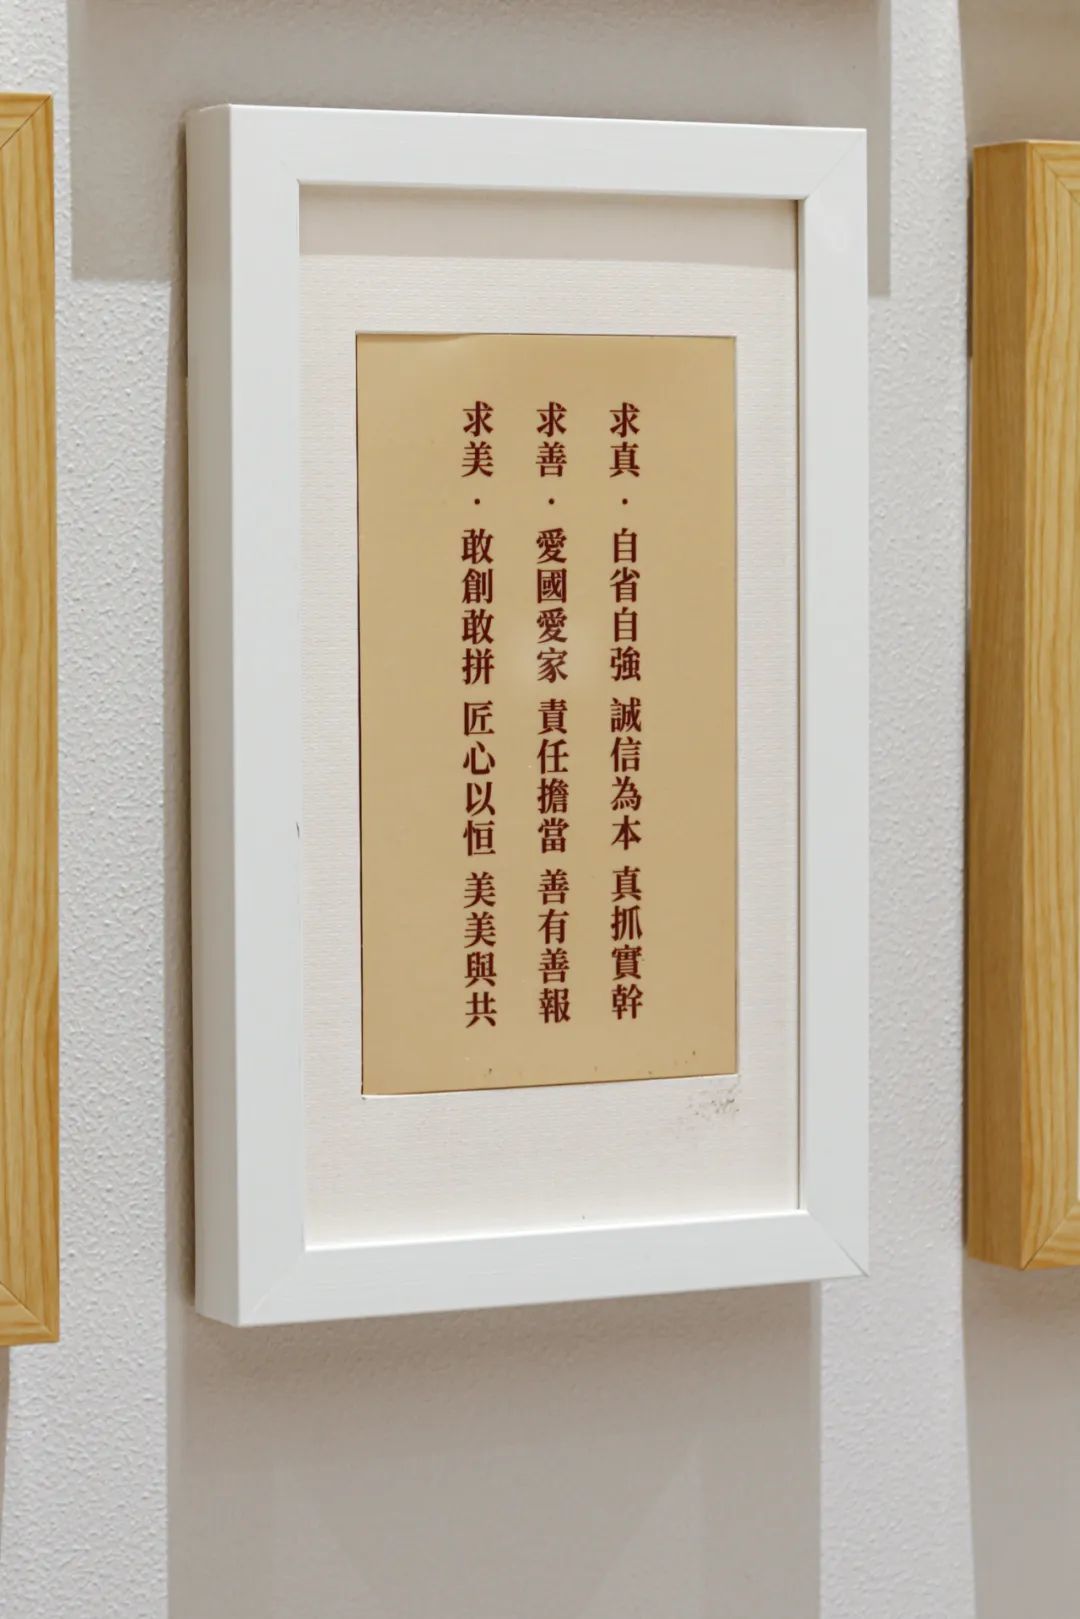 求真·自省自強 誠信為本 真抓實幹
求善·愛國愛家 責任擔當 善有善報
求美·敢創敢拼 匠心以恒 美美與共